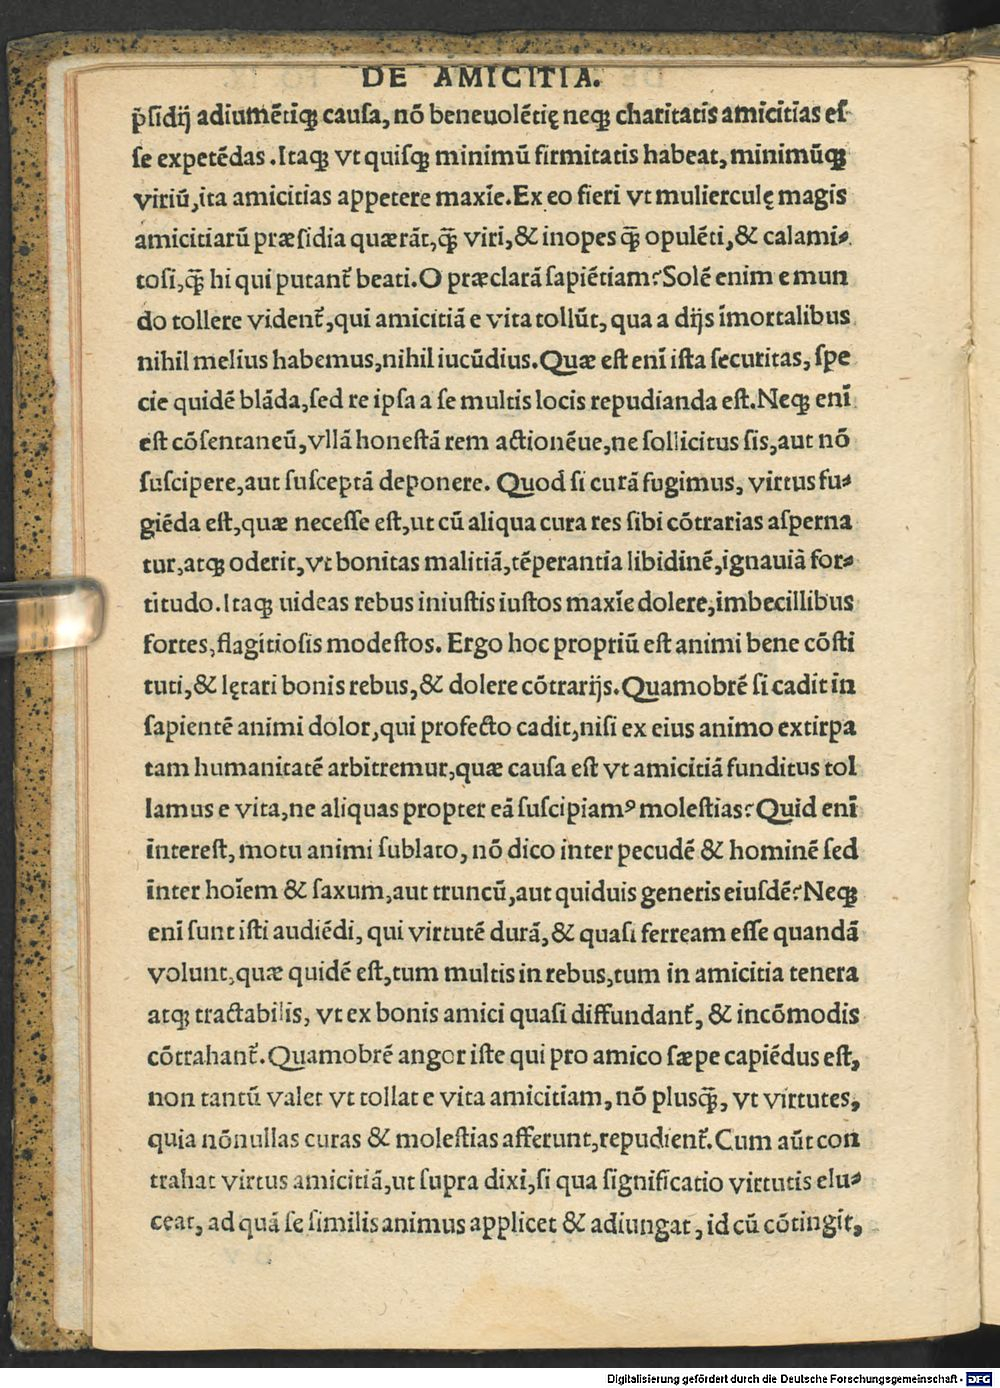 DE AMICITIA.
p̄sidij adiumētiqꝫ causa, nō beneuolētię neqꝫ charitatis amicitias es-
se expetēdas. Itaqꝫ vt quisqꝫ minimū firmitatis habeat, minimūqꝫ
viriū, ita amicitias appetere maxīe. Ex eo fieri vt mulierculę magis
amicitiarū præsidia quærāt, qꝫ̄ viri, & inopes qꝫ̄ opulēti, & calami-
tosi, qꝫ̄ hi qui putant᷑ beati. O præclarā sapiētiam? Solē enim e mun
do tollere vident᷑, qui amicitiā e vita tollūt, qua a dijs īmortalibus
nihil melius habemus, nihil iucūdius. Quæ est enī ista securitas, spe
cie quidē blāda, sed re ipsa a se multis locis repudianda est. Neqꝫ enī
est cōsentaneū, vllā honestā rem actionēue, ne sollicitus sis, aut nō
suscipere, aut susceptā deponere. Quod si curā fugimus, virtus fu-
giēda est, quæ necesse est, ut cū aliqua cura res sibi cōtrarias asperna
tur, atqꝫ oderit, vt bonitas malitiā, tēperantia libidinē, ignauiā for-
titudo. Itaqꝫ uideas rebus iniustis iustos maxīe dolere, imbecillibus
fortes, flagitiosis modestos. Ergo hoc propriū est animi bene cōsti
tuti, & lętari bonis rebus, & dolere cōtrarijs. Quamobrē si cadit in
sapientē animi dolor, qui profecto cadit, nisi ex eius animo extirpa
tam humanitatē arbitremur, quæ causa est vt amicitiā funditus tol
lamus e vita, ne aliquas propter eā suscipiamꝰ molestias? Quid enī
īnterest, motu animi sublato, nō dico inter pecudē & hominē sed
īnter hoīem & saxum, aut truncū, aut quiduis generis eiusdē? Neqꝫ
enī sunt isti audiēdi, qui virtutē durā, & quasi ferream esse quandā
volunt, quæ quidē est, tum multis in rebus, tum in amicitia tenera
atqꝫ tractabilis, vt ex bonis amici quasi diffundant᷑, & incōmodis
cōtrahant᷑. Quamobrē angor iste qui pro amico sæpe capiēdus est,
non tantū valet vt tollat e vita amicitiam, nō plusqꝫ̄, vt virtutes,
quia nōnullas curas & molestias afferunt, repudient᷑. Cum aūt con
trahat virtus amicitiā, ut supra dixi, si qua significatio virtutis elu-
ceat, ad quā se similis animus applicet & adiungat, id cū cōtingit,
Digitalisierung gefördert durch die Deutsche Forschungsgemeinschaft - DFG